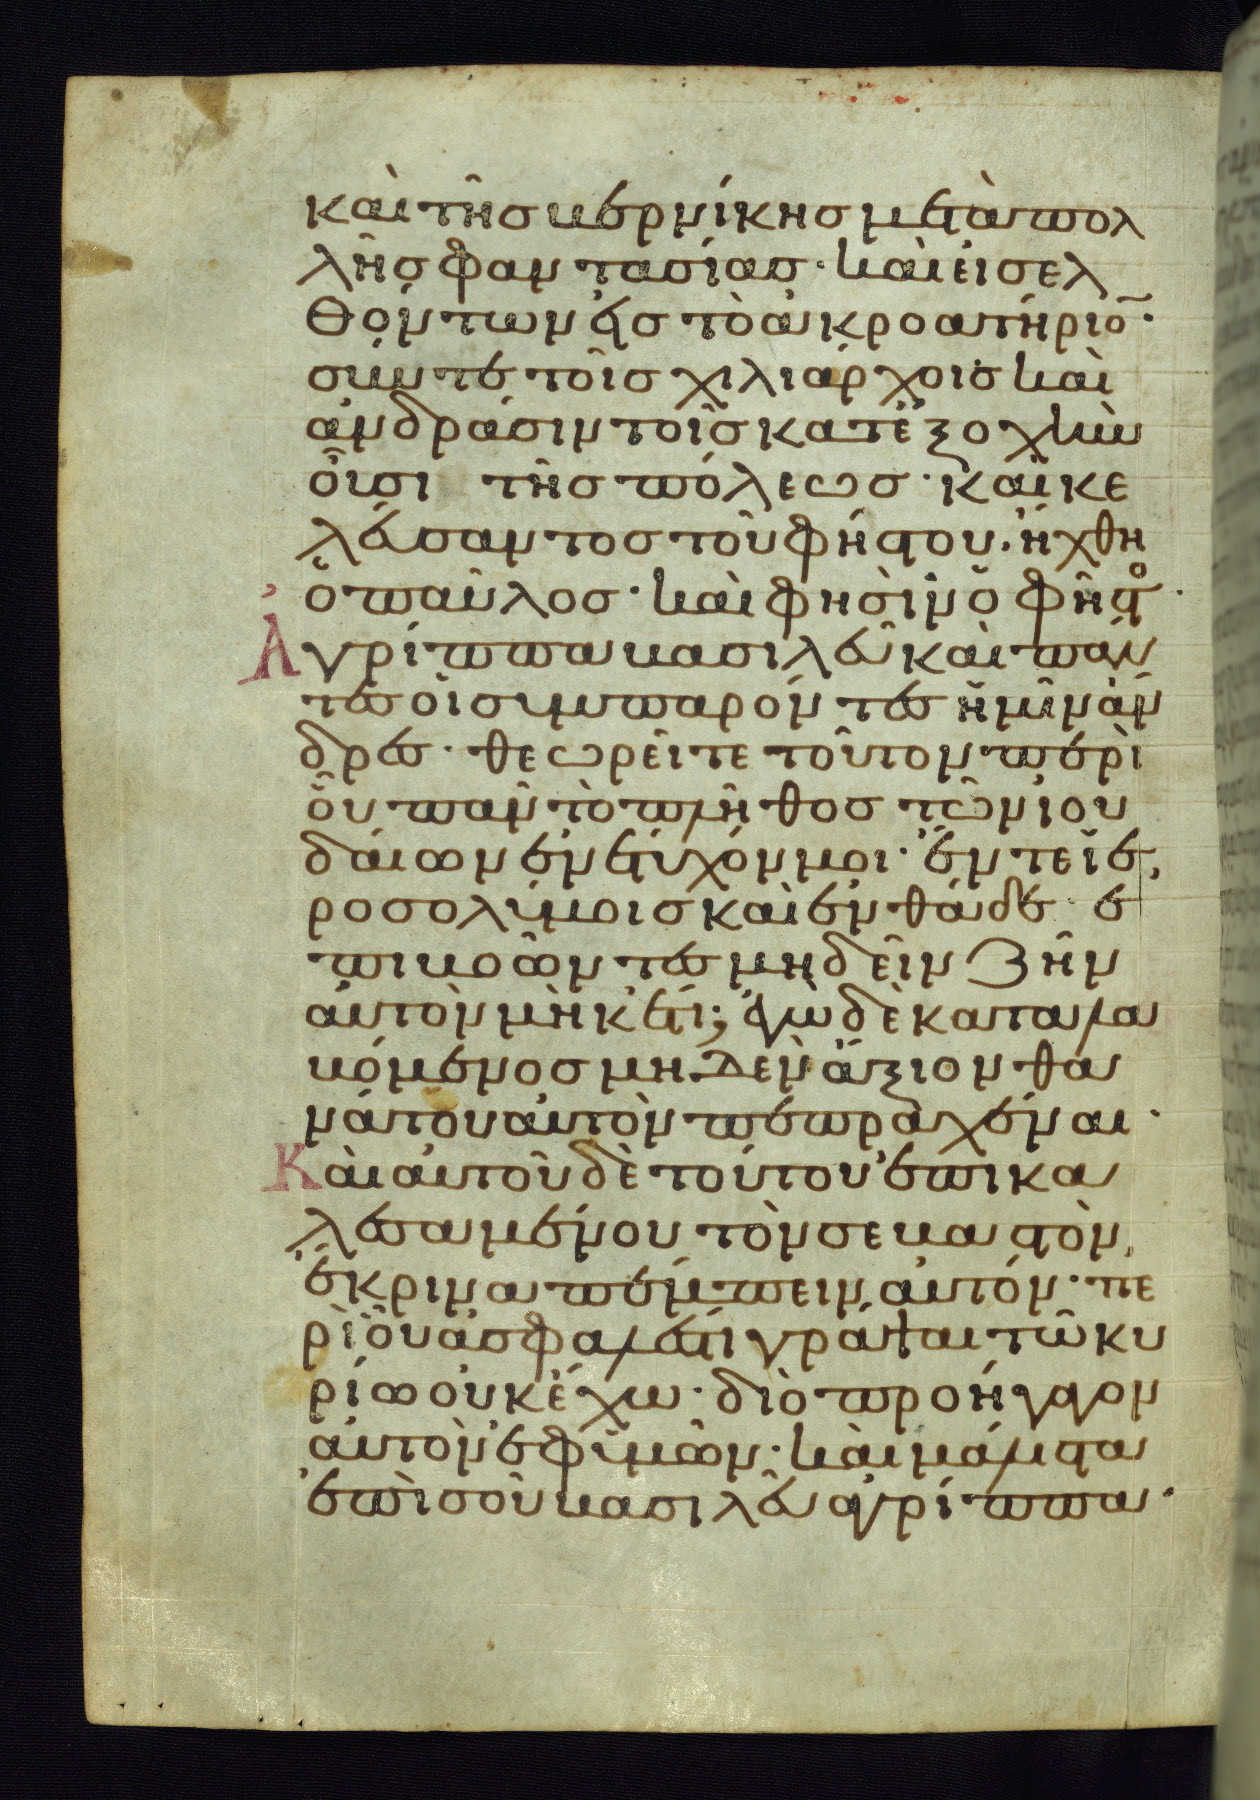 καὶ τῆς βερνίκης μετὰ πολ
λῆς φαντασίας· καὶ εἰσελ
θόντων εἰς τὸ ἀκροατήριο̅·
σύν τε τοῖς χιλιάρχοις καὶ
ἀνδράσιν τοῖς κατ ἐξοχὴν
οὖσι τῆς πόλεως· καὶ κε
λεύσαντος τοῦ φήστου. ἤχθη
ὁ παῦλος· καὶ φησὶν ὁ φῆστο·
Ἀγρίππα βασιλεῦ καὶ πάν
τες οἱ συμπαρόντες ἡμῖν ἄν
δρες· θεωρεῖτε τοῦτον περὶ
οὗ πᾶν τὸ πλῆθος τῶν ἰου
δαίων ἐνέτυχόν μοι· ἔν τε ἱε
ροσολύμοις καὶ ἐνθάδε· ἐ
πιβοῶντες μὴ δεῖν ζῆν
αὐτὸν μὴκέτι; ἐγὼ δὲ καταλα
βόμενος μηδὲν ἄξιον θα
νάτου αὐτὸν πεπραχέναι·
Καὶ αὐτοῦ δὲ τούτου ἐπικα
λεσαμένου τὸν σεβαστὸν,
ἔκρινα πέμπειν αὐτόν· πε
ρὶ οὗ ἀσφαλές τι γράψαι τῶ κυ
ρίω οὐκ ἔχω· διὸ προήγαγον
αὐτὸν ἐφ ὑμῶν· καὶ μάλιστα
ἐπὶ σοῦ βασιλεῦ ἀγρίππα·